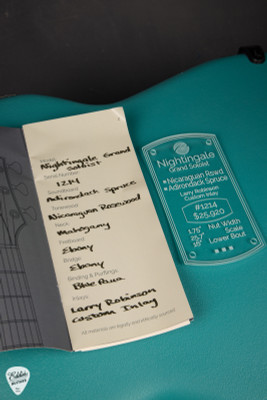 Model:
Nightingale Grand
Soloist
Serial Number:
1214
Soundboard:
Adirondack Spruce
Tonewood:
Nicaraguan Rosewood
Neck:
Mahogany
Fretboard:
Ebony
Bridge:
Ebony
Binding & Purflings:
Inlays:
Larry Robinson
Custom Inlay
All materials are legally and ethically sourced
Nightingale
Grand Soloist
Nicaraguan Rswd.
Adirondack Spruce
Larry Robinson
Custom Inlay
#1214
$25,920
1.75" Nut Width
Scale
Lower Bout